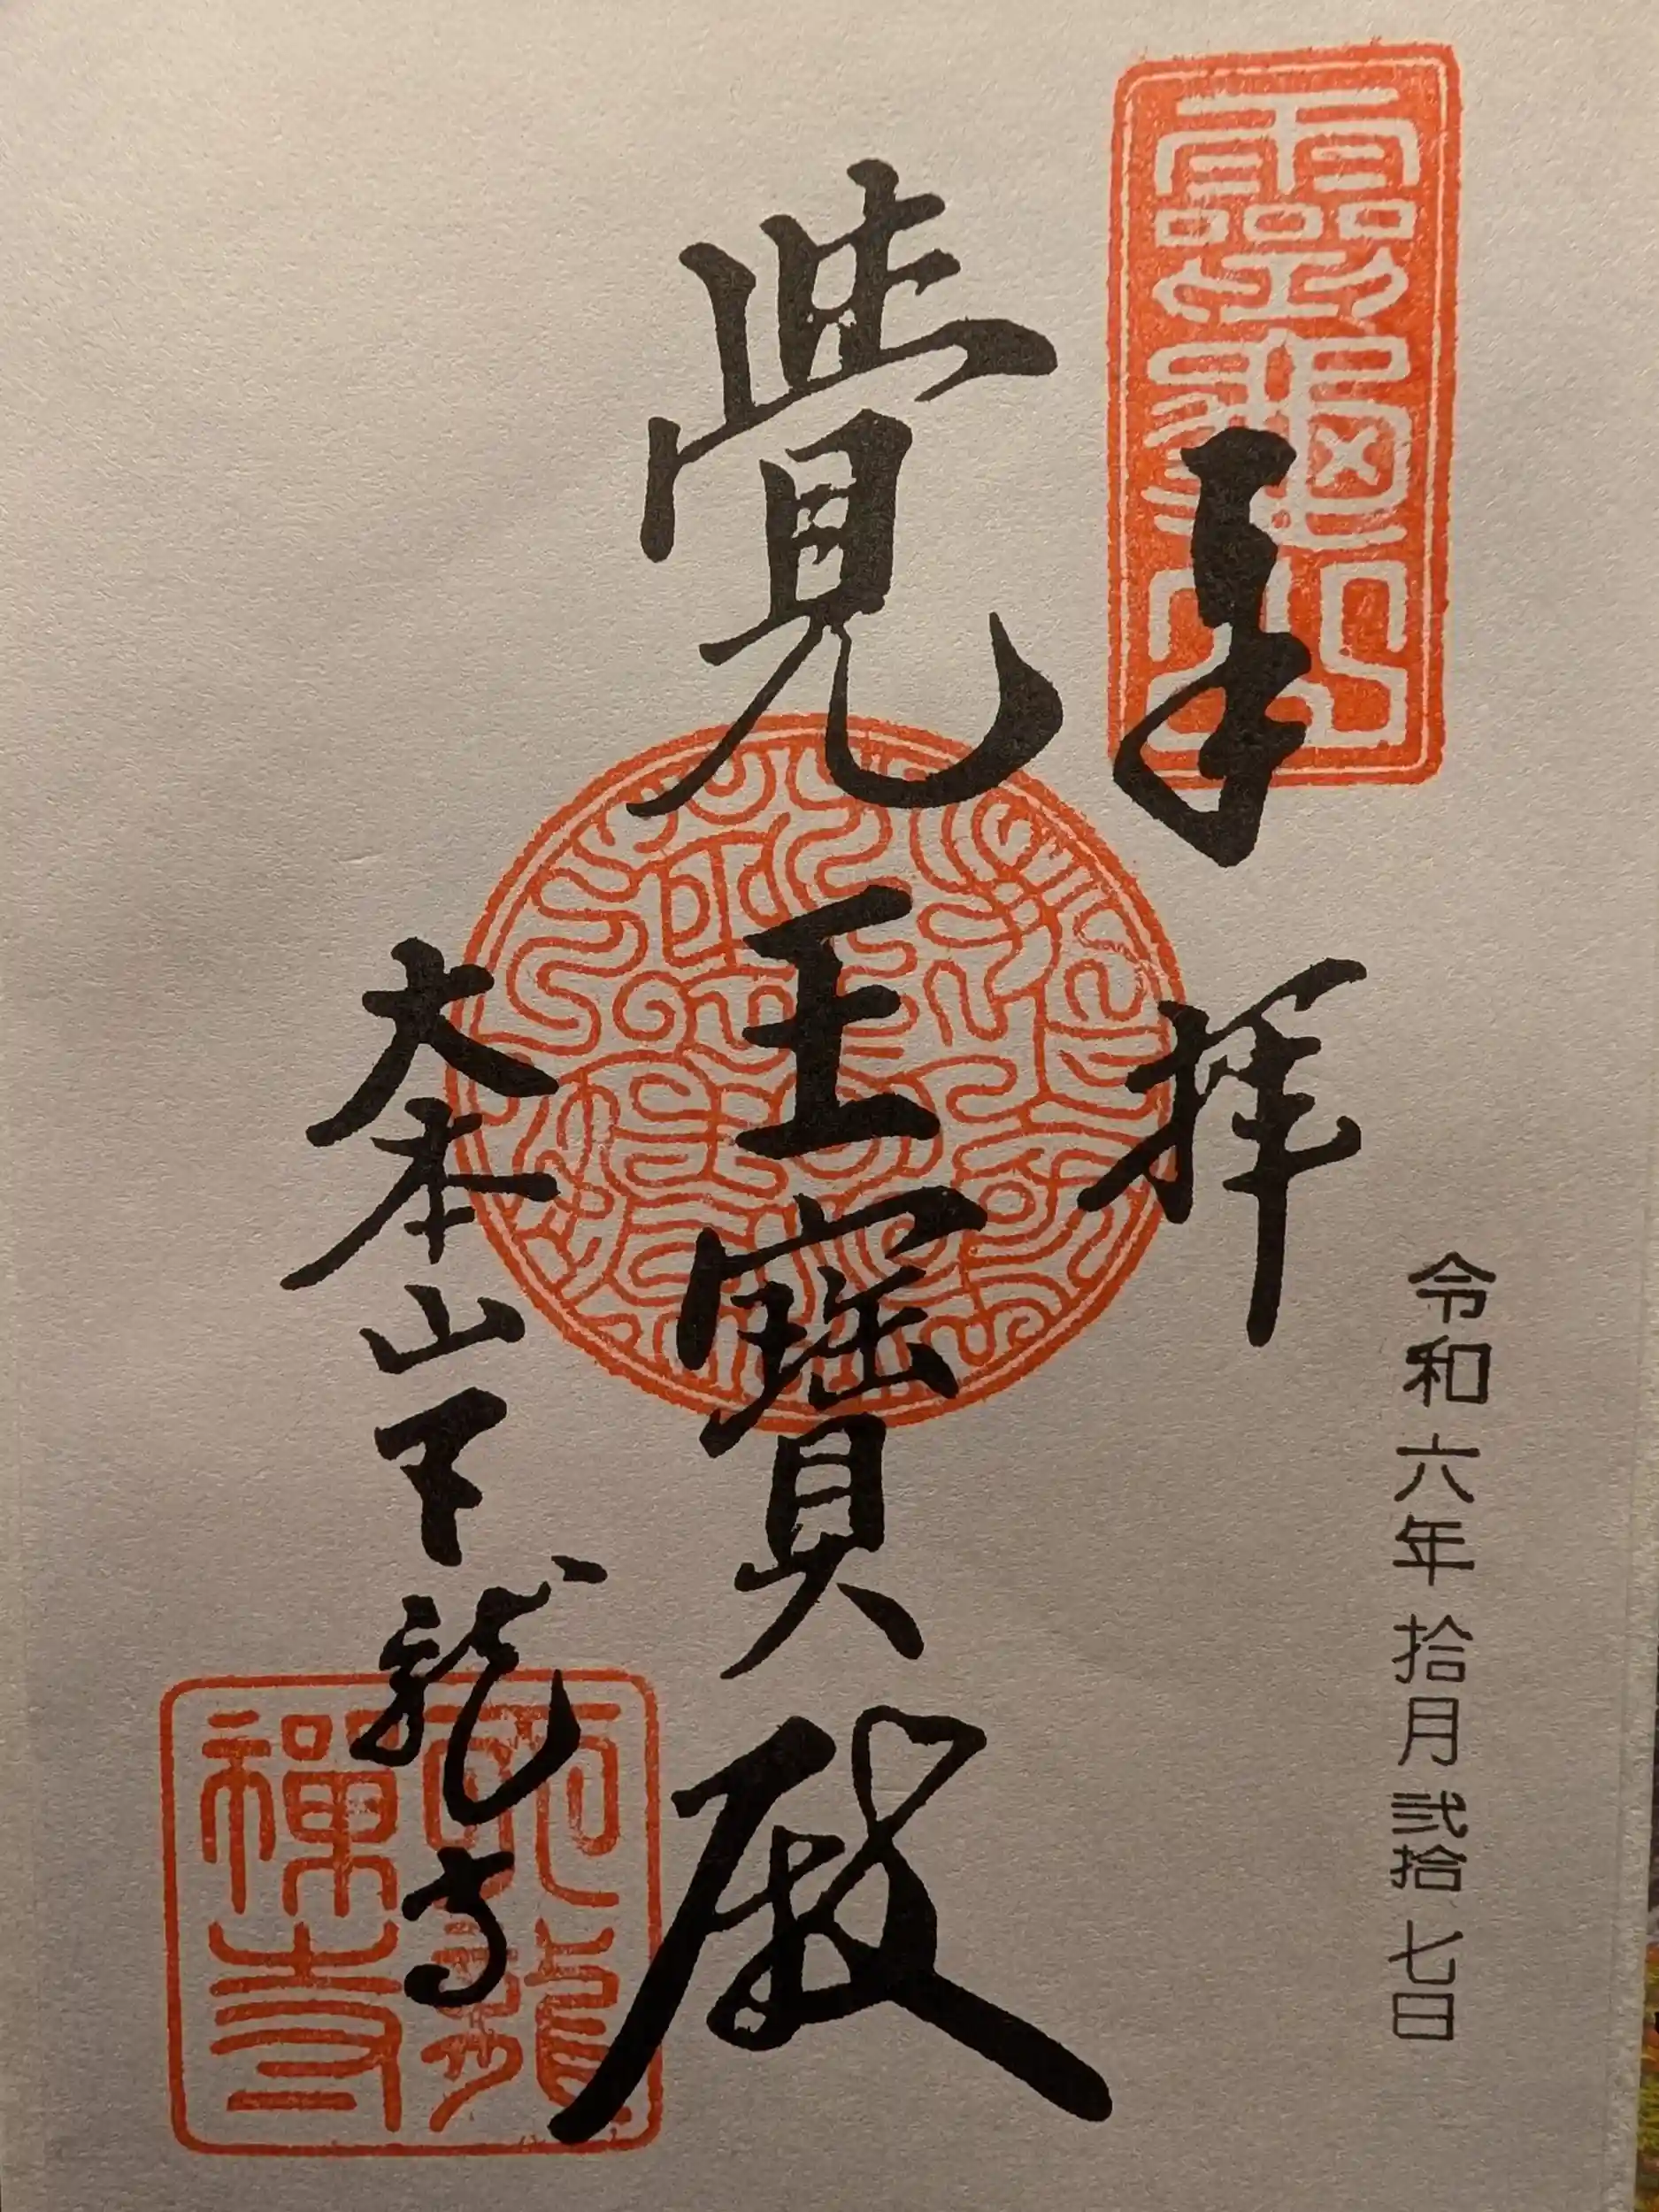 靈龜山
奉拝
令和六年拾月弐拾七日
覺王寶殿
大本山天龍寺
天龍
禪寺